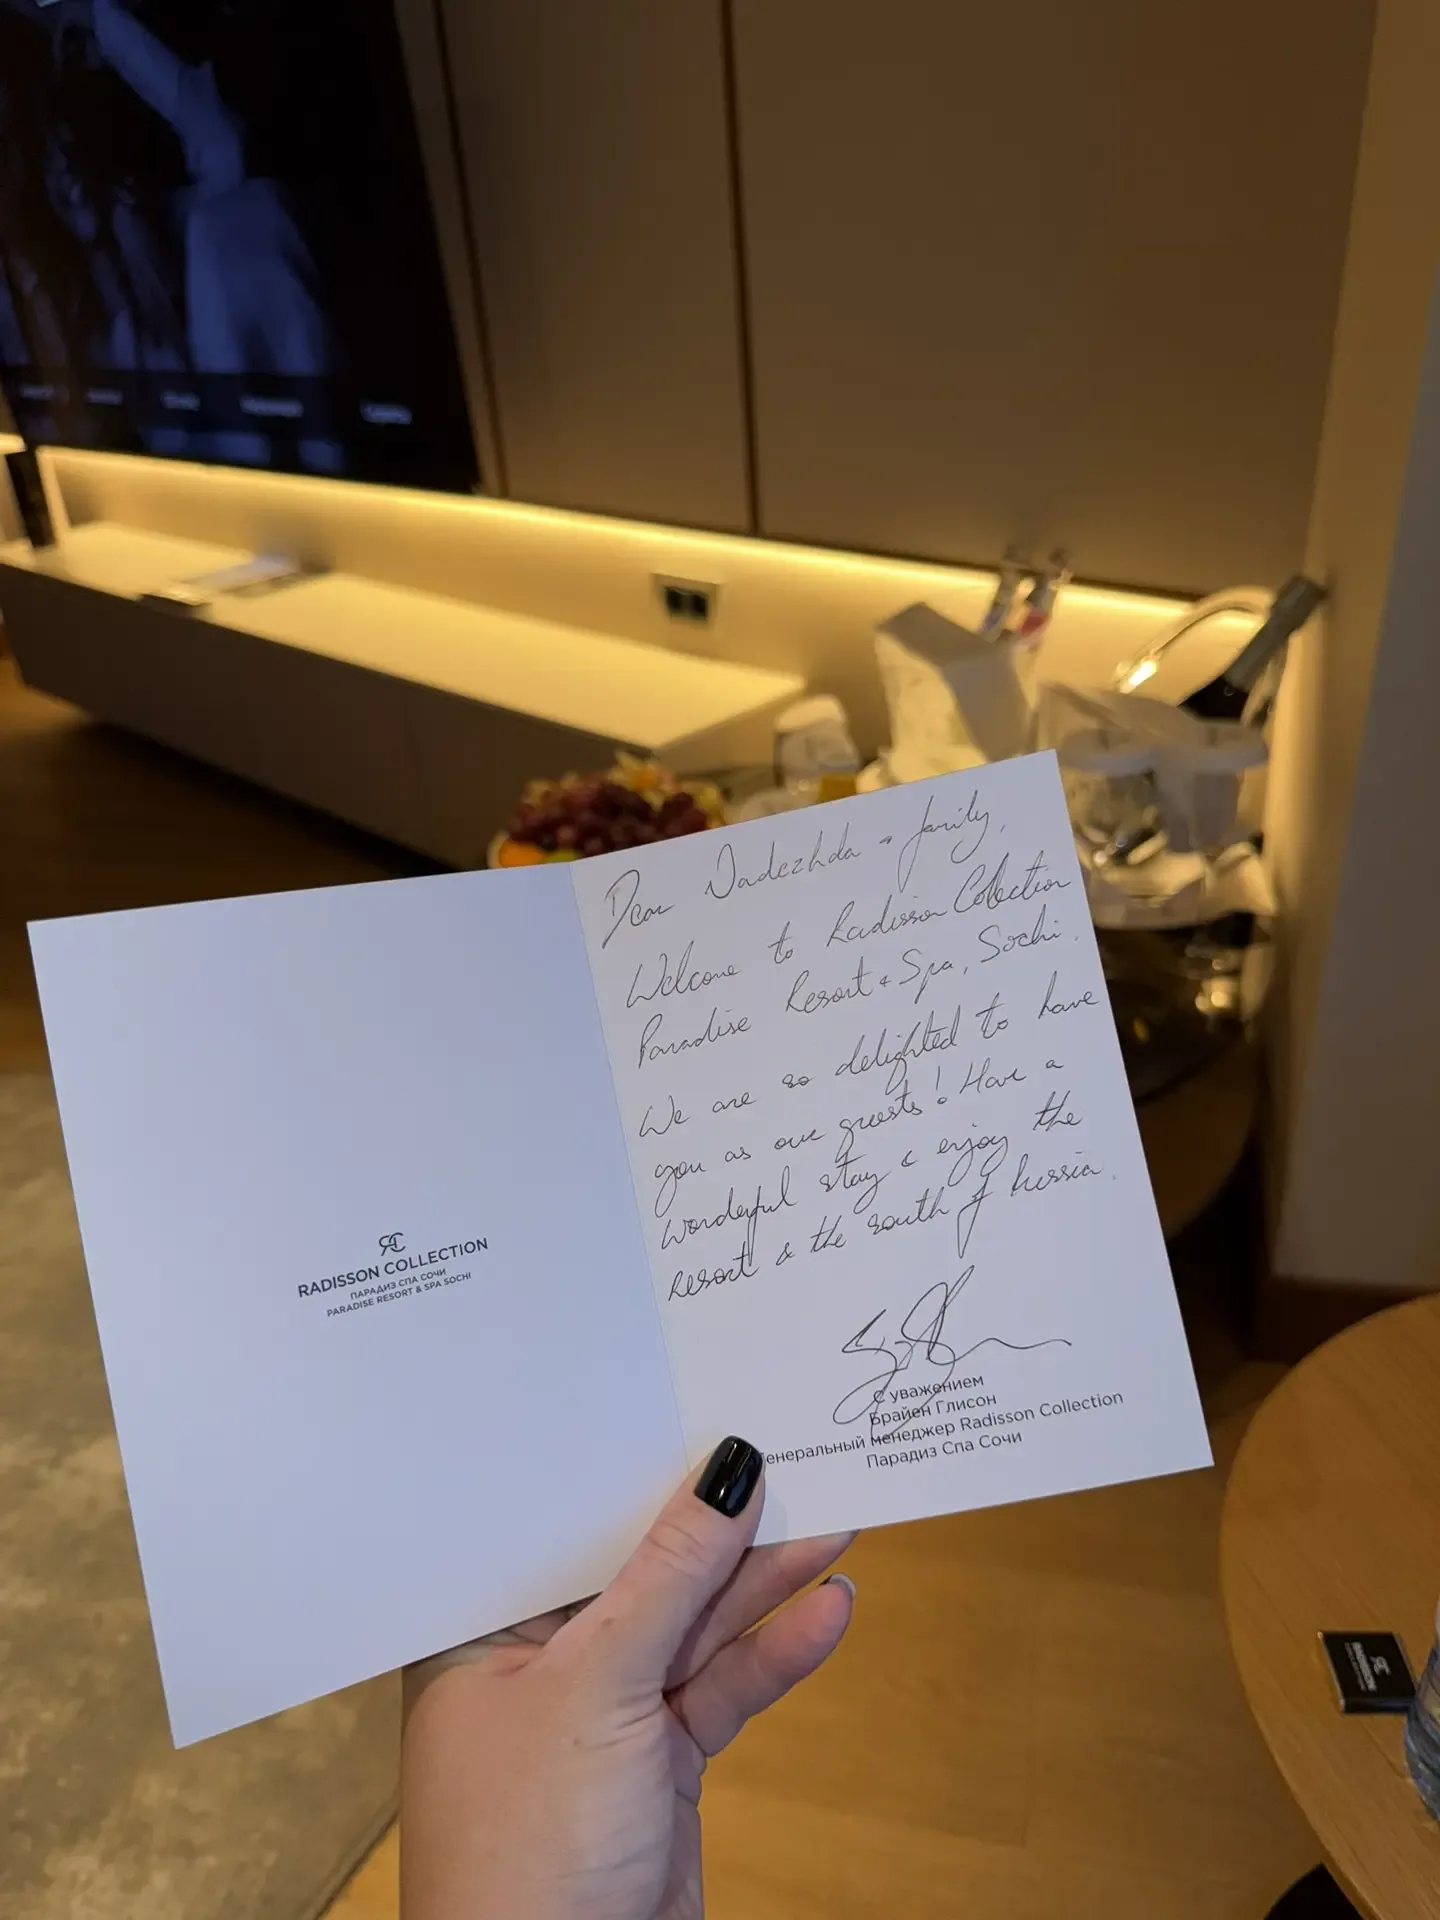 RADISSON COLLECTION
ПАРАДИЗ СПА СОЧИ
PARADISE RESORT & SPA SOCHI
Dear Nadezhda & family,
Welcome to Radisson Collection
Paradise Resort & Spa, Sochi.
We are so delighted to have
you as our guests! Have a
wonderful stay & enjoy the
resort & the south of Russia.
С уважением
Брайен Глисон
Генеральный менеджер Radisson Collection
Парадиз Спа Сочи
RADISSON